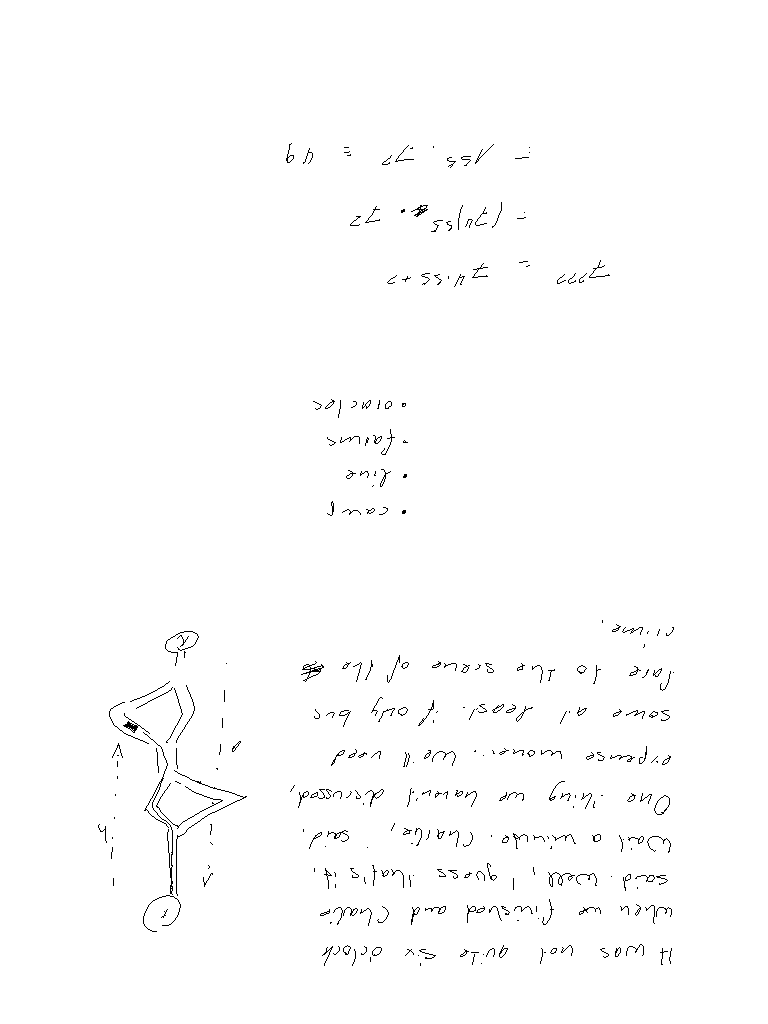 It was not quite six o'clock
when we finished and Chalie
said. Well, I guess that's it.
Wait a minute. Charlie, said.
One thing we haven't discussed,
expense money. We'll need
some at least. if only bus
fare to the scene of the
crime.
• camp
• line
• farms
• oracles
7222 = 74·55+2
= (74)55 · 72
= 155 · 72 = 49